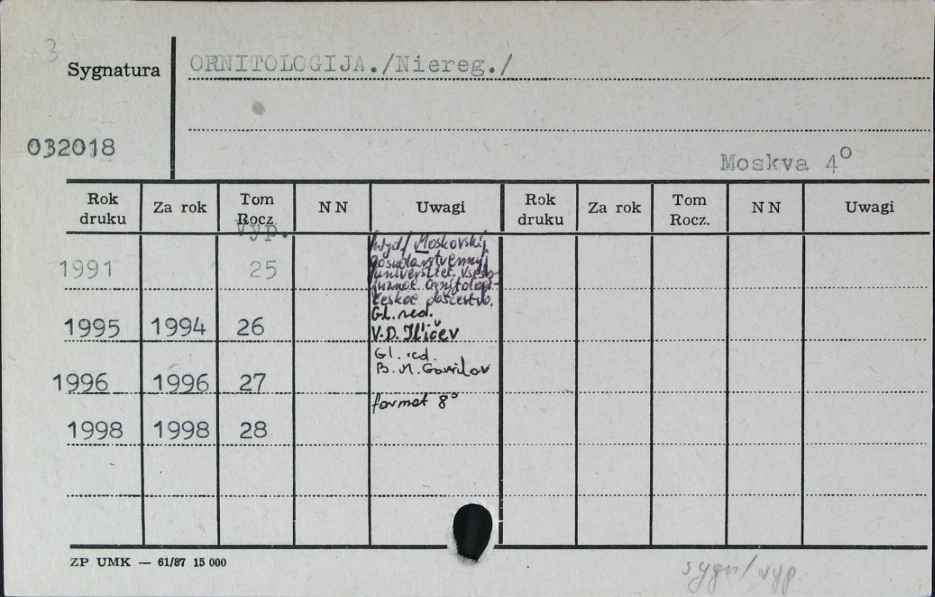 3
Sygnatura ORNITOLOGIJA./Niereg./
032018
Moskva 4°
Rok druku Za rok Tom Rocz. NN Uwagi Rok druku Za rok Tom Rocz. NN Uwagi
Vyp.
1991 25 Wyd/ Moskovskij
gosudarstvennyj
universitet. Vseso-
juznoe ornitologi-
českoe obščestvo.
Gl. red.
1995 1994 26 V.D. Il'ičev
Gl. red.
1996 1996 27
format 8°
1998 1998 28
ZP UMK — 61/87 15 000
sygn/vyp.